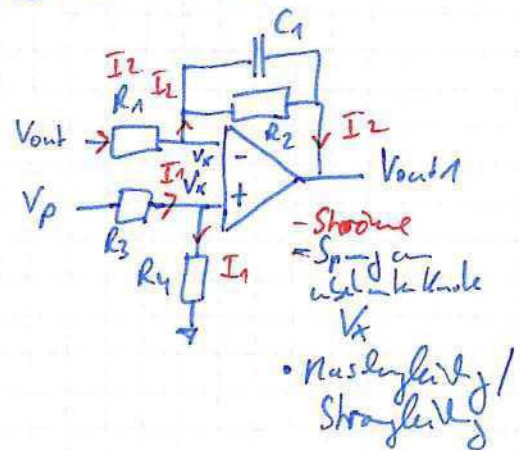 C1
I2
I2
R1
R2
I2
Vout
Vx
-
Vout1
I1
Vx
Vp
+
R3
R4
I1
- Ströme
=
Vx
• Maschengleichung /
Stromgleichung